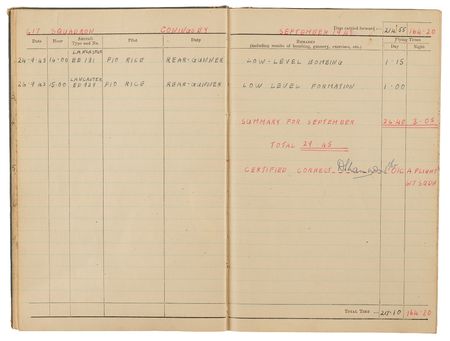 617 SQUADRON CONINGSBY SEPTEMBER 1943 Time carried forward:— 214·55 164·20
Date Hour Aircraft Type and No. Pilot Duty REMARKS (including results of bombing, gunnery, exercises, etc.) Flying Times Day Night
LANCASTER
24·9·43 14·00 EE 131 P/O RICE REAR-GUNNER LOW-LEVEL BOMBING 1·15
LANCASTER
26·9·43 15·00 P/O RICE REAR-GUNNER LOW LEVEL FORMATION 1·00
SUMMARY FOR SEPTEMBER 26·40 3·05
TOTAL 29·45
CERTIFIED CORRECT O/C A. FLIGHT
TOTAL TIME 164·20